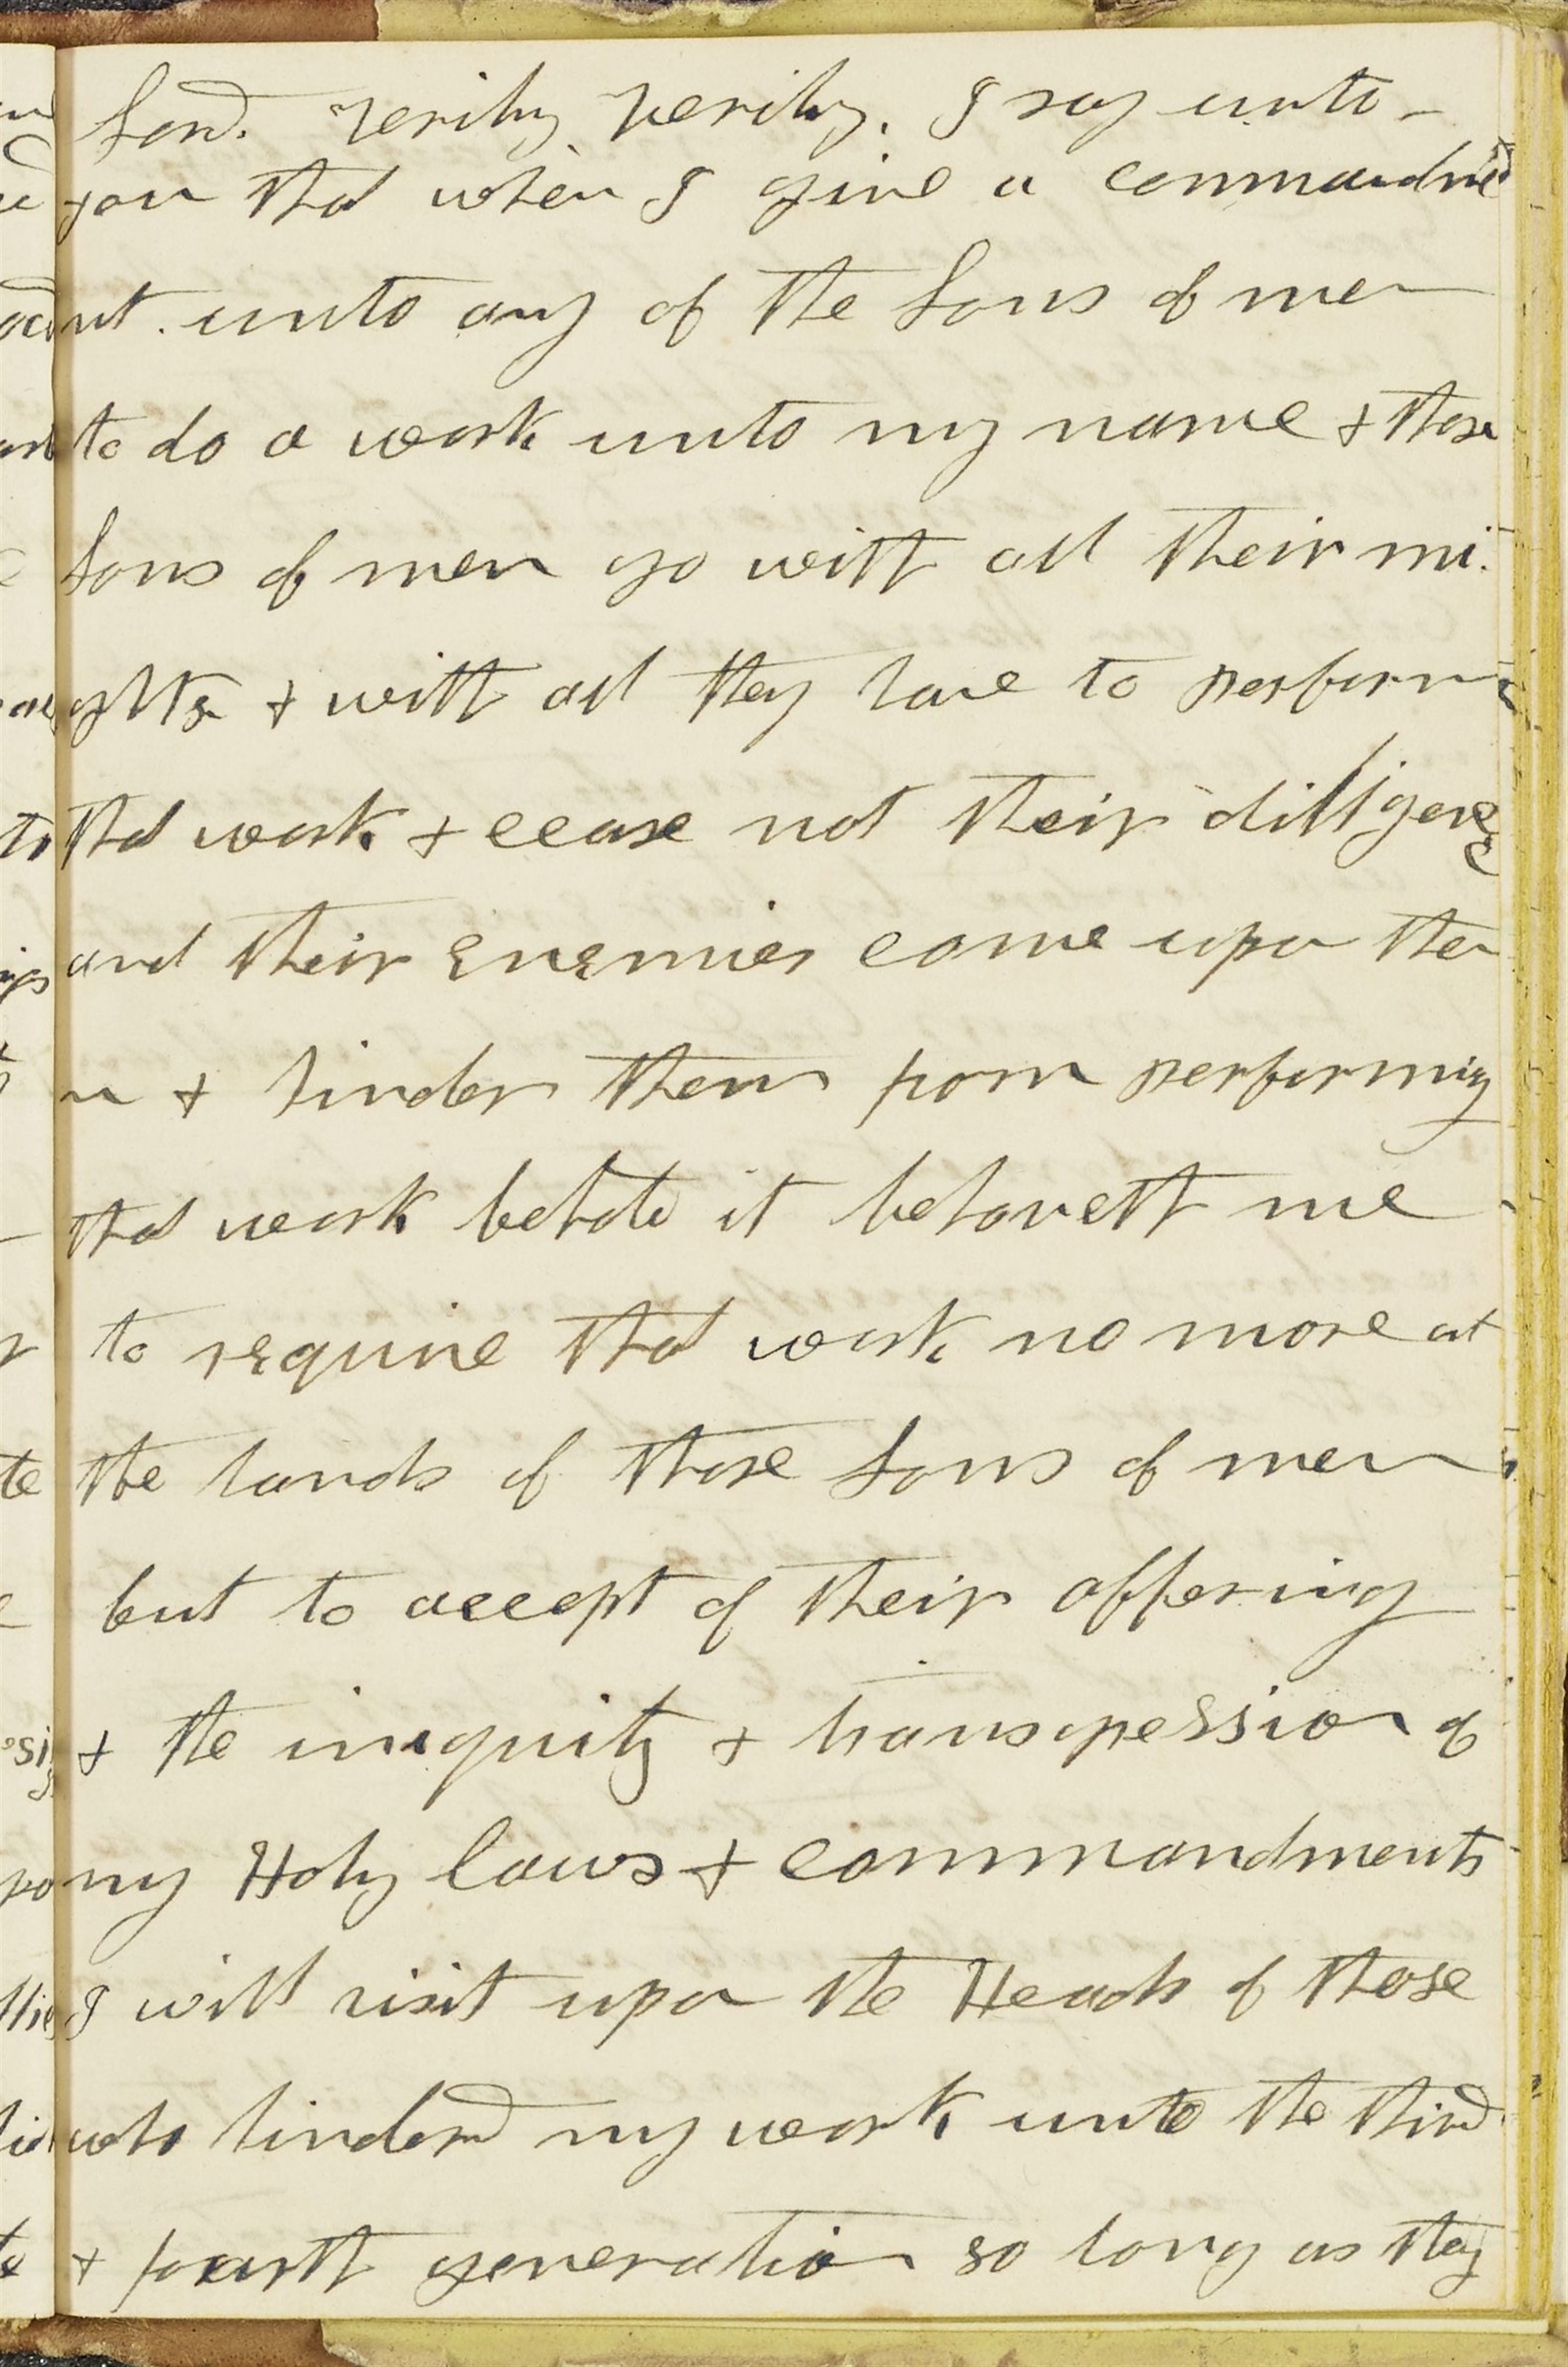 Lord. Verily Verily, I say unto
you that when I give a commandme
nt. unto any of the Sons of men
to do a work unto my name & those
Sons of men go with all their mi
ghts & with all they have to perform
that work & cease not their dilligence
and their Enemies come upon the
m & hinder them from performing
that work behold it behoveth me
to require that work no more at
the hands of those Sons of men
but to accept of their offering
& the iniquity & transgression of
my Holy laws & commandments
I will visit upon the Heads of those
who hinderd my work unto the third
& fourth generation so long as they